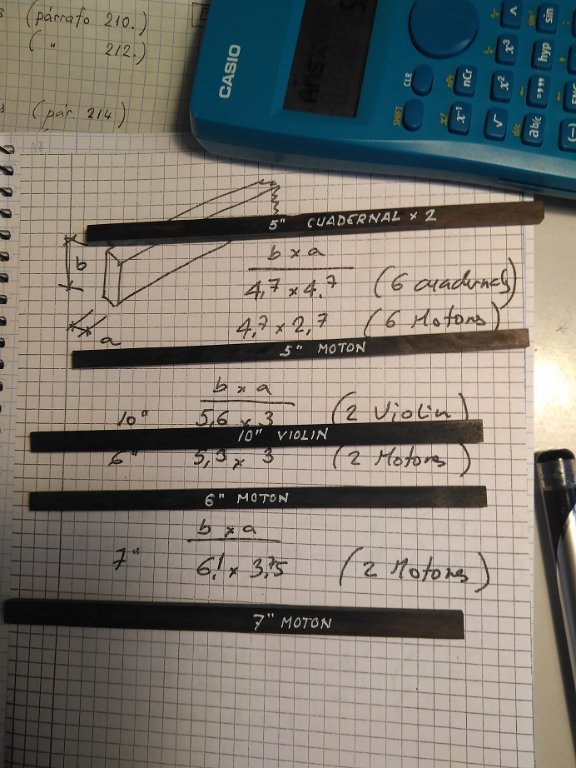 (párrafo 210.)
( " 212.)
(pár. 214)
CASIO
CLR
SHIFT
nCr
x³
hyp
x⁻¹
x²
√
ab/c
sin
(–)
5" CUADERNAL × 2
b x a
b
4,7 x 4,7 (6 cuadernals)
4,7 x 2,7 (6 Motons)
a
5" MOTON
b x a
10" 5,6 x 3 (2 Violin)
10" VIOLIN
6" 5,3 x 3 (2 Motons)
6" MOTON
b x a
7" 6,1 x 3,75 (2 Motons)
7" MOTON